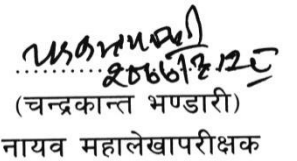 २०७७।२।२८
(चन्द्रकान्त भण्डारी)
नायव महालेखापरीक्षक